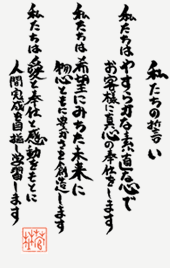 私たちの誓い
私たちはやすらぎな素直な心で
お客様に真心の奉仕をします
私たちは希望にみちた未来に
物心ともに豊かさを創造します
私たちは愛と奉仕と感動をもとに
人間完成を目指し学習します